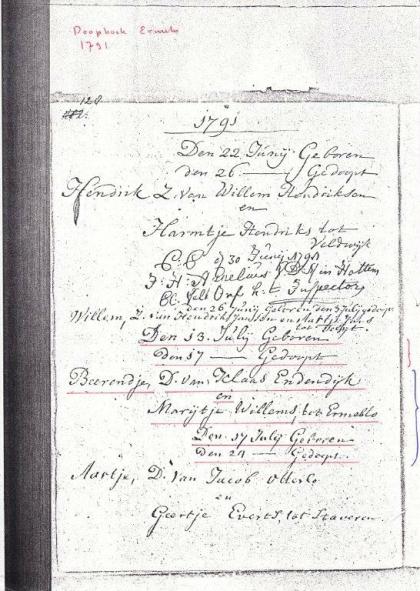 Doopboek Ermelo
1791
128
1791
Den 22 Junij Geboren
den 26 —— Gedoopt
Hendrik Z. van Willem Hendriksen
en
Harmtje Hendriks tot
Veldwijk
30 Junij 1791
in Hattem
Inspector
Willem, Z. van Hendrik Jansen en Aartje Jans
den 26 Junij Geboren den 3 Julij gedoopt
tot
Den 13 Julij Geboren
Den 17 —— Gedoopt
Beerendje, D. van Klaas Endendijk
en
Marijtje Willems, tot Ermello
Den 17 Julij Geboren
den 24 —— Gedoopt.
Aartje, D. van Jacob Otterlo
en
Geertje Everts, tot Staveren.